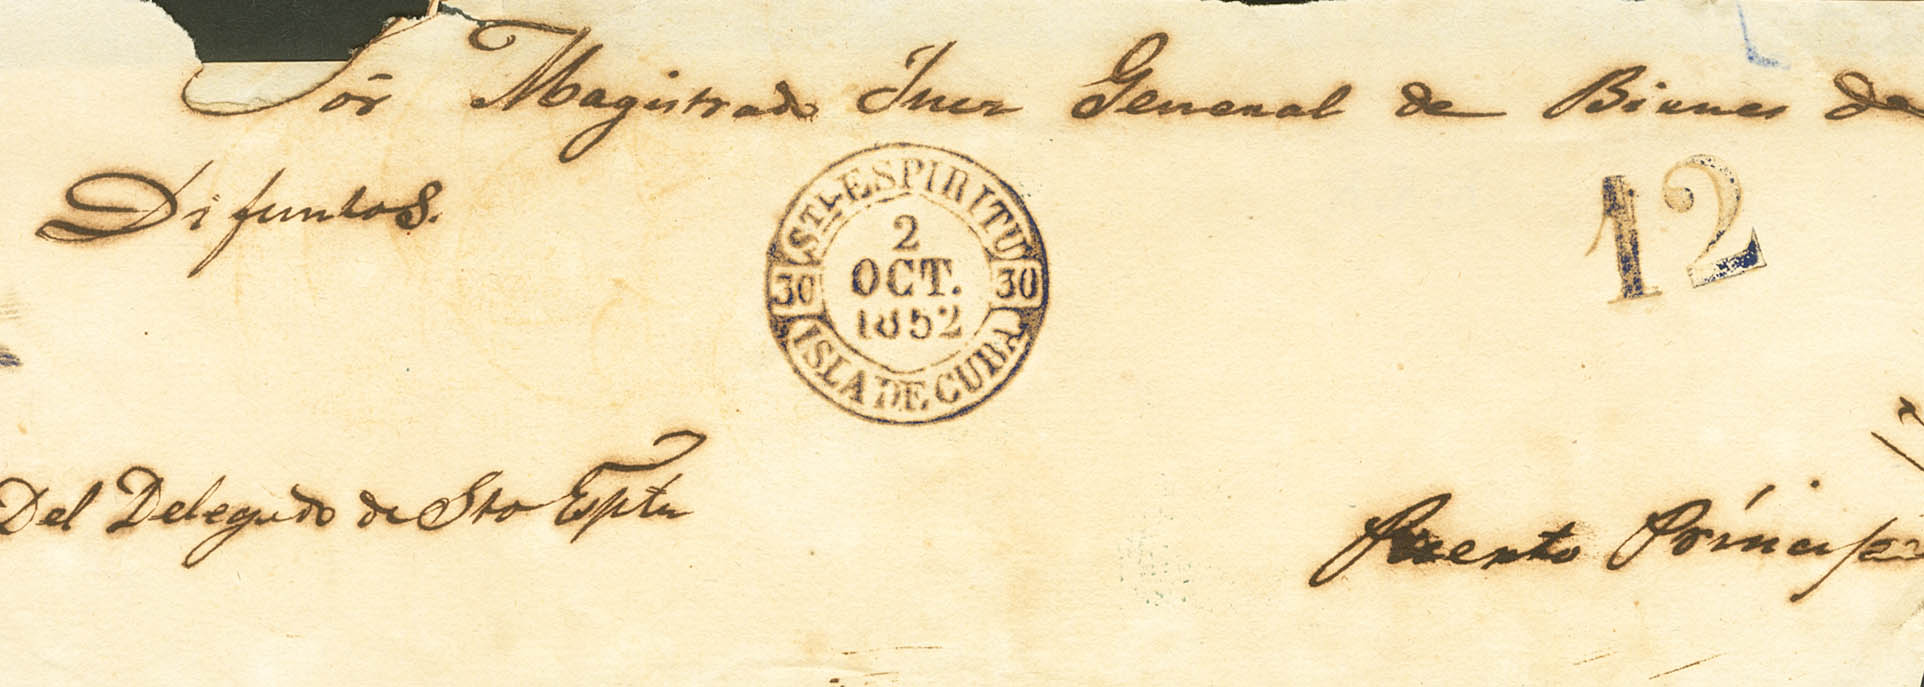 Sōr Magistrado Juez General de Bienes de
Difuntos.
STI-ESPIRITU
2
OCT.
1852
30 30
ISLA DE CUBA
12
Del Delegado de Sto Esptu
Puerto Príncipe